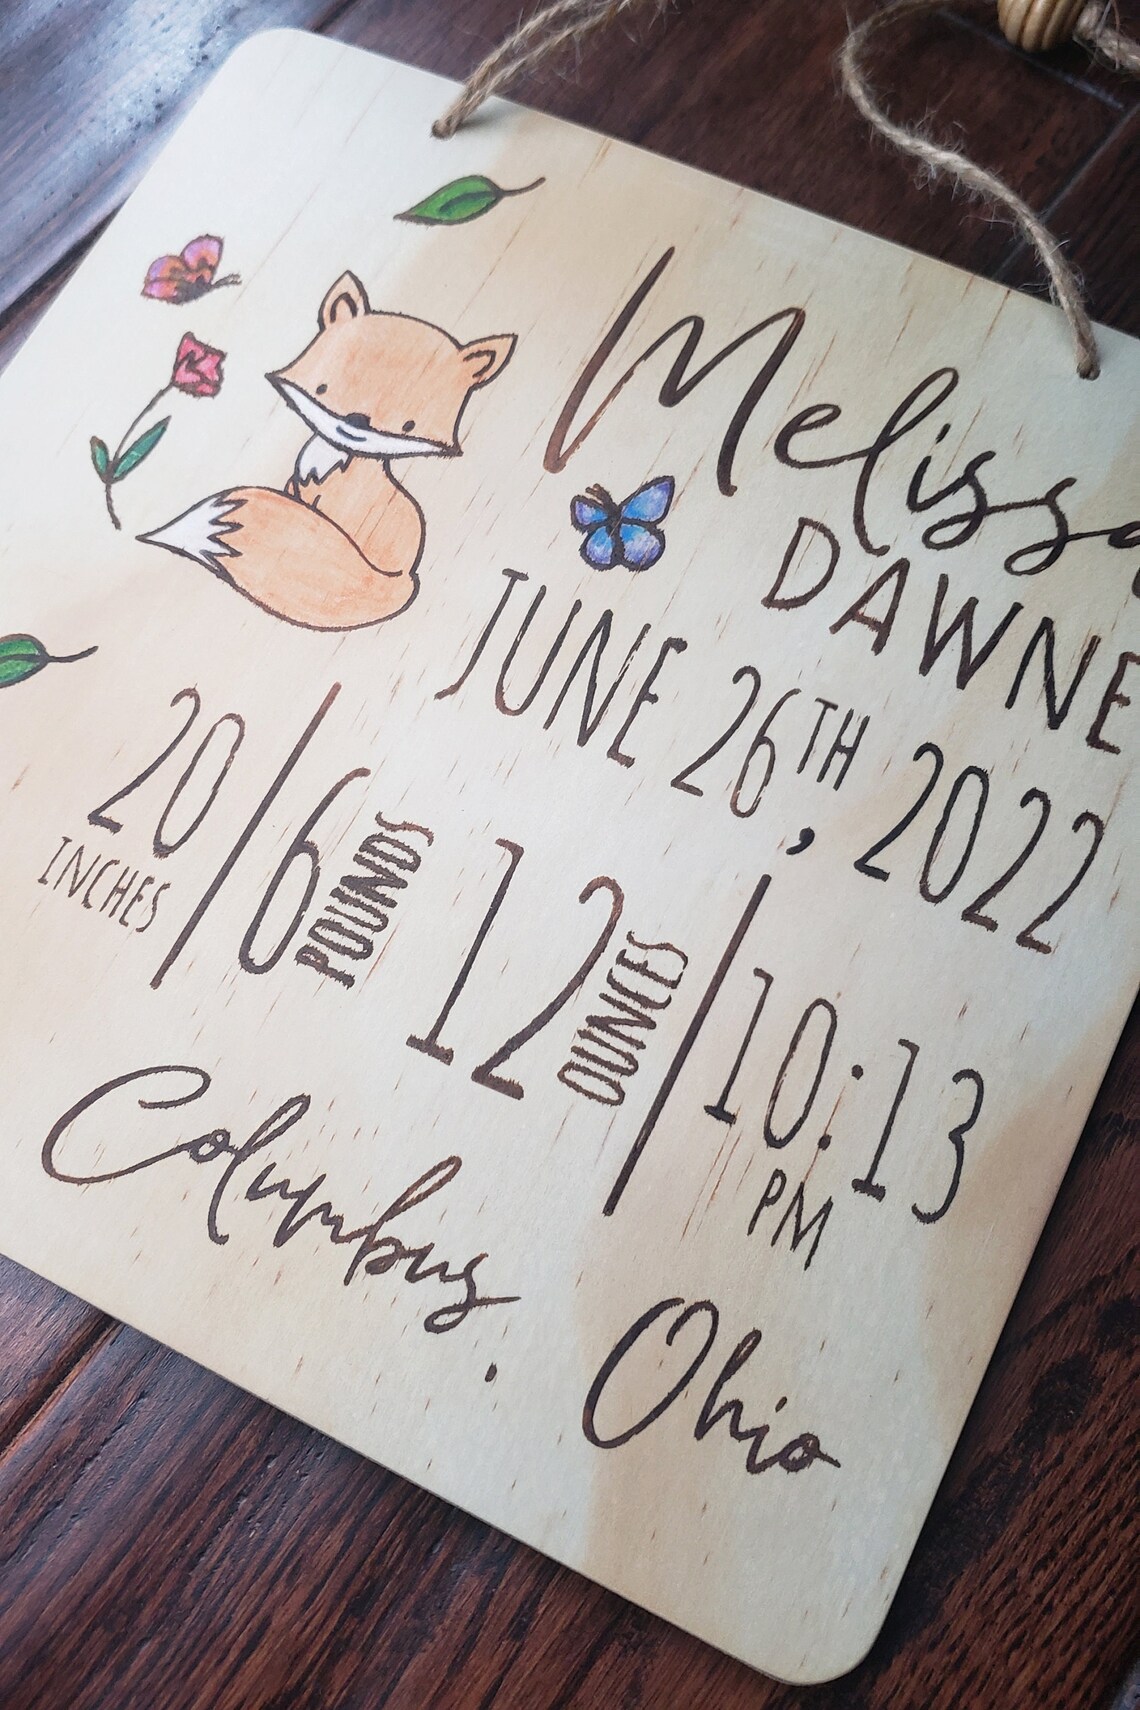 Melissa
DAWNE
JUNE 26TH, 2022
20 INCHES / 6 POUNDS 12 OUNCES / 10:13 PM
Columbus, Ohio